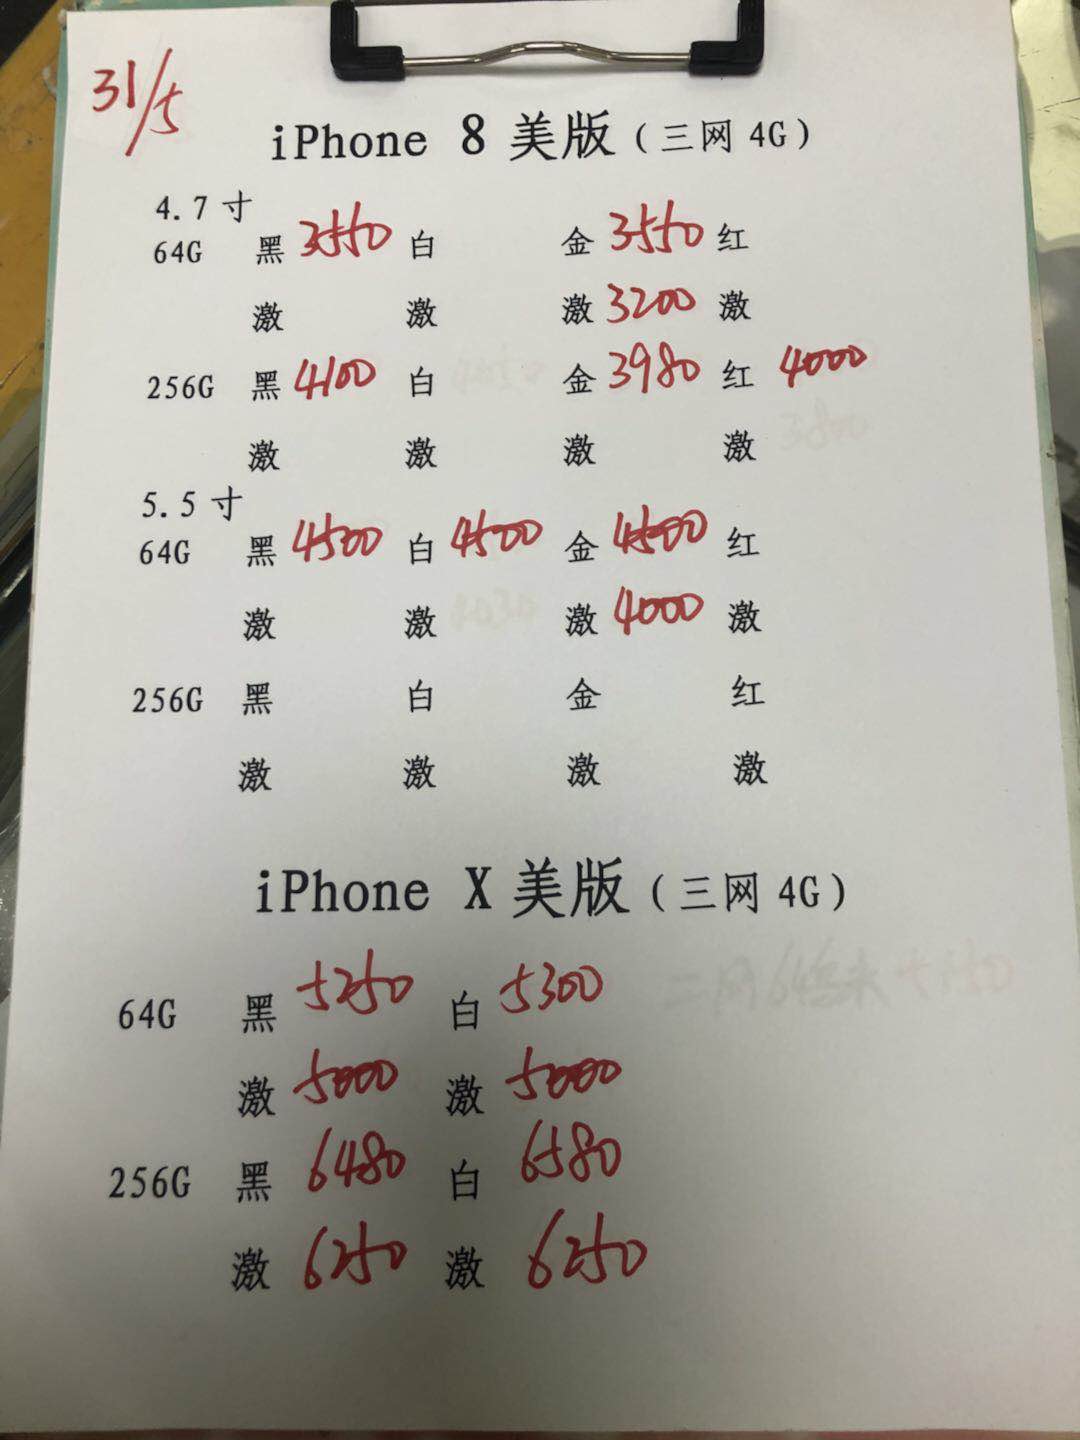 31/5
iPhone 8 美版（三网 4G）
4.7 寸
64G 黑 3550 白 金 3550 红
激 激 激 3200 激
256G 黑 4100 白 金 3980 红 4000
激 激 激 激
5.5 寸
64G 黑 4500 白 4500 金 4500 红
激 激 激 4000 激
256G 黑 白 金 红
激 激 激 激
iPhone X 美版（三网 4G）
64G 黑 5250 白 5300
激 5000 激 5000
256G 黑 6480 白 6580
激 6250 激 6250